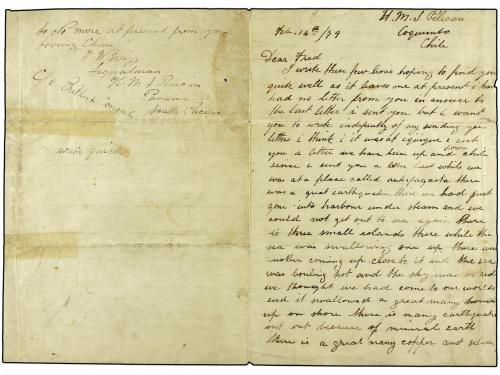 to No more at present from your
loving Chum
Signalman
H. M. S Pelican
C/o British Consul Panama
South Pacific
write quick
H. M. S Pelican
Coquimbo
Chili
Feb. 14th /79
Dear Fred
I write these few lines hoping to find you
quite well as it leaves me at present i have
had no letter from you in answer to
the last letter i sent you but i want
you to write indipently of my sending you
letters i think i it was at iquique i sent
you a letter we have been up and down chile
sense i sent you a letter last while we
was at a place called antofagasta there
was a great earthquake then we had just
gone into harbour under steam and we
could not get out to sea again there
is three small islands there while the
sea was swallowing one up there was
another coming up close to it and the sea
was boiling hot and the sky was so red
we thought we had come to our worlds
end it swallowed a great many houses
up on shore there is many earthquakes
out out because of mineral earth
there is a great many copper and silver